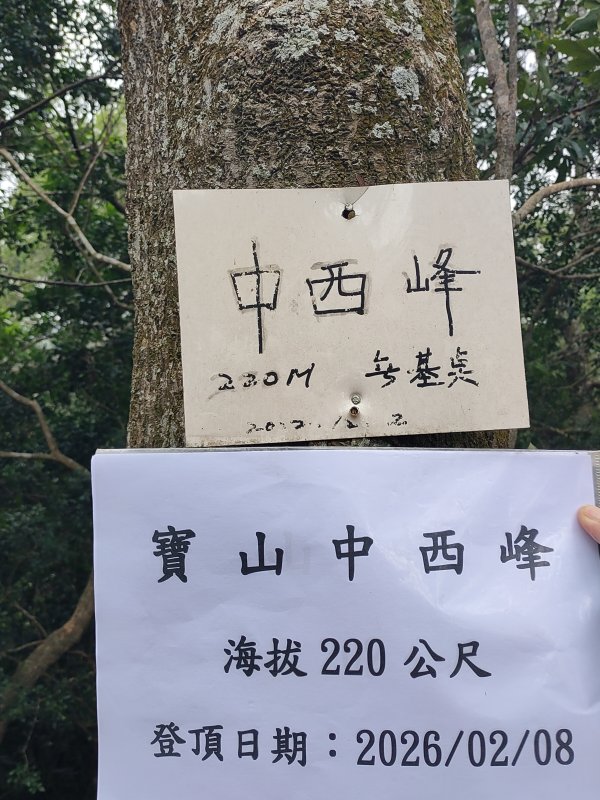 中西峰
220M 無基點
寶山中西峰
海拔220公尺
登頂日期：2026/02/08